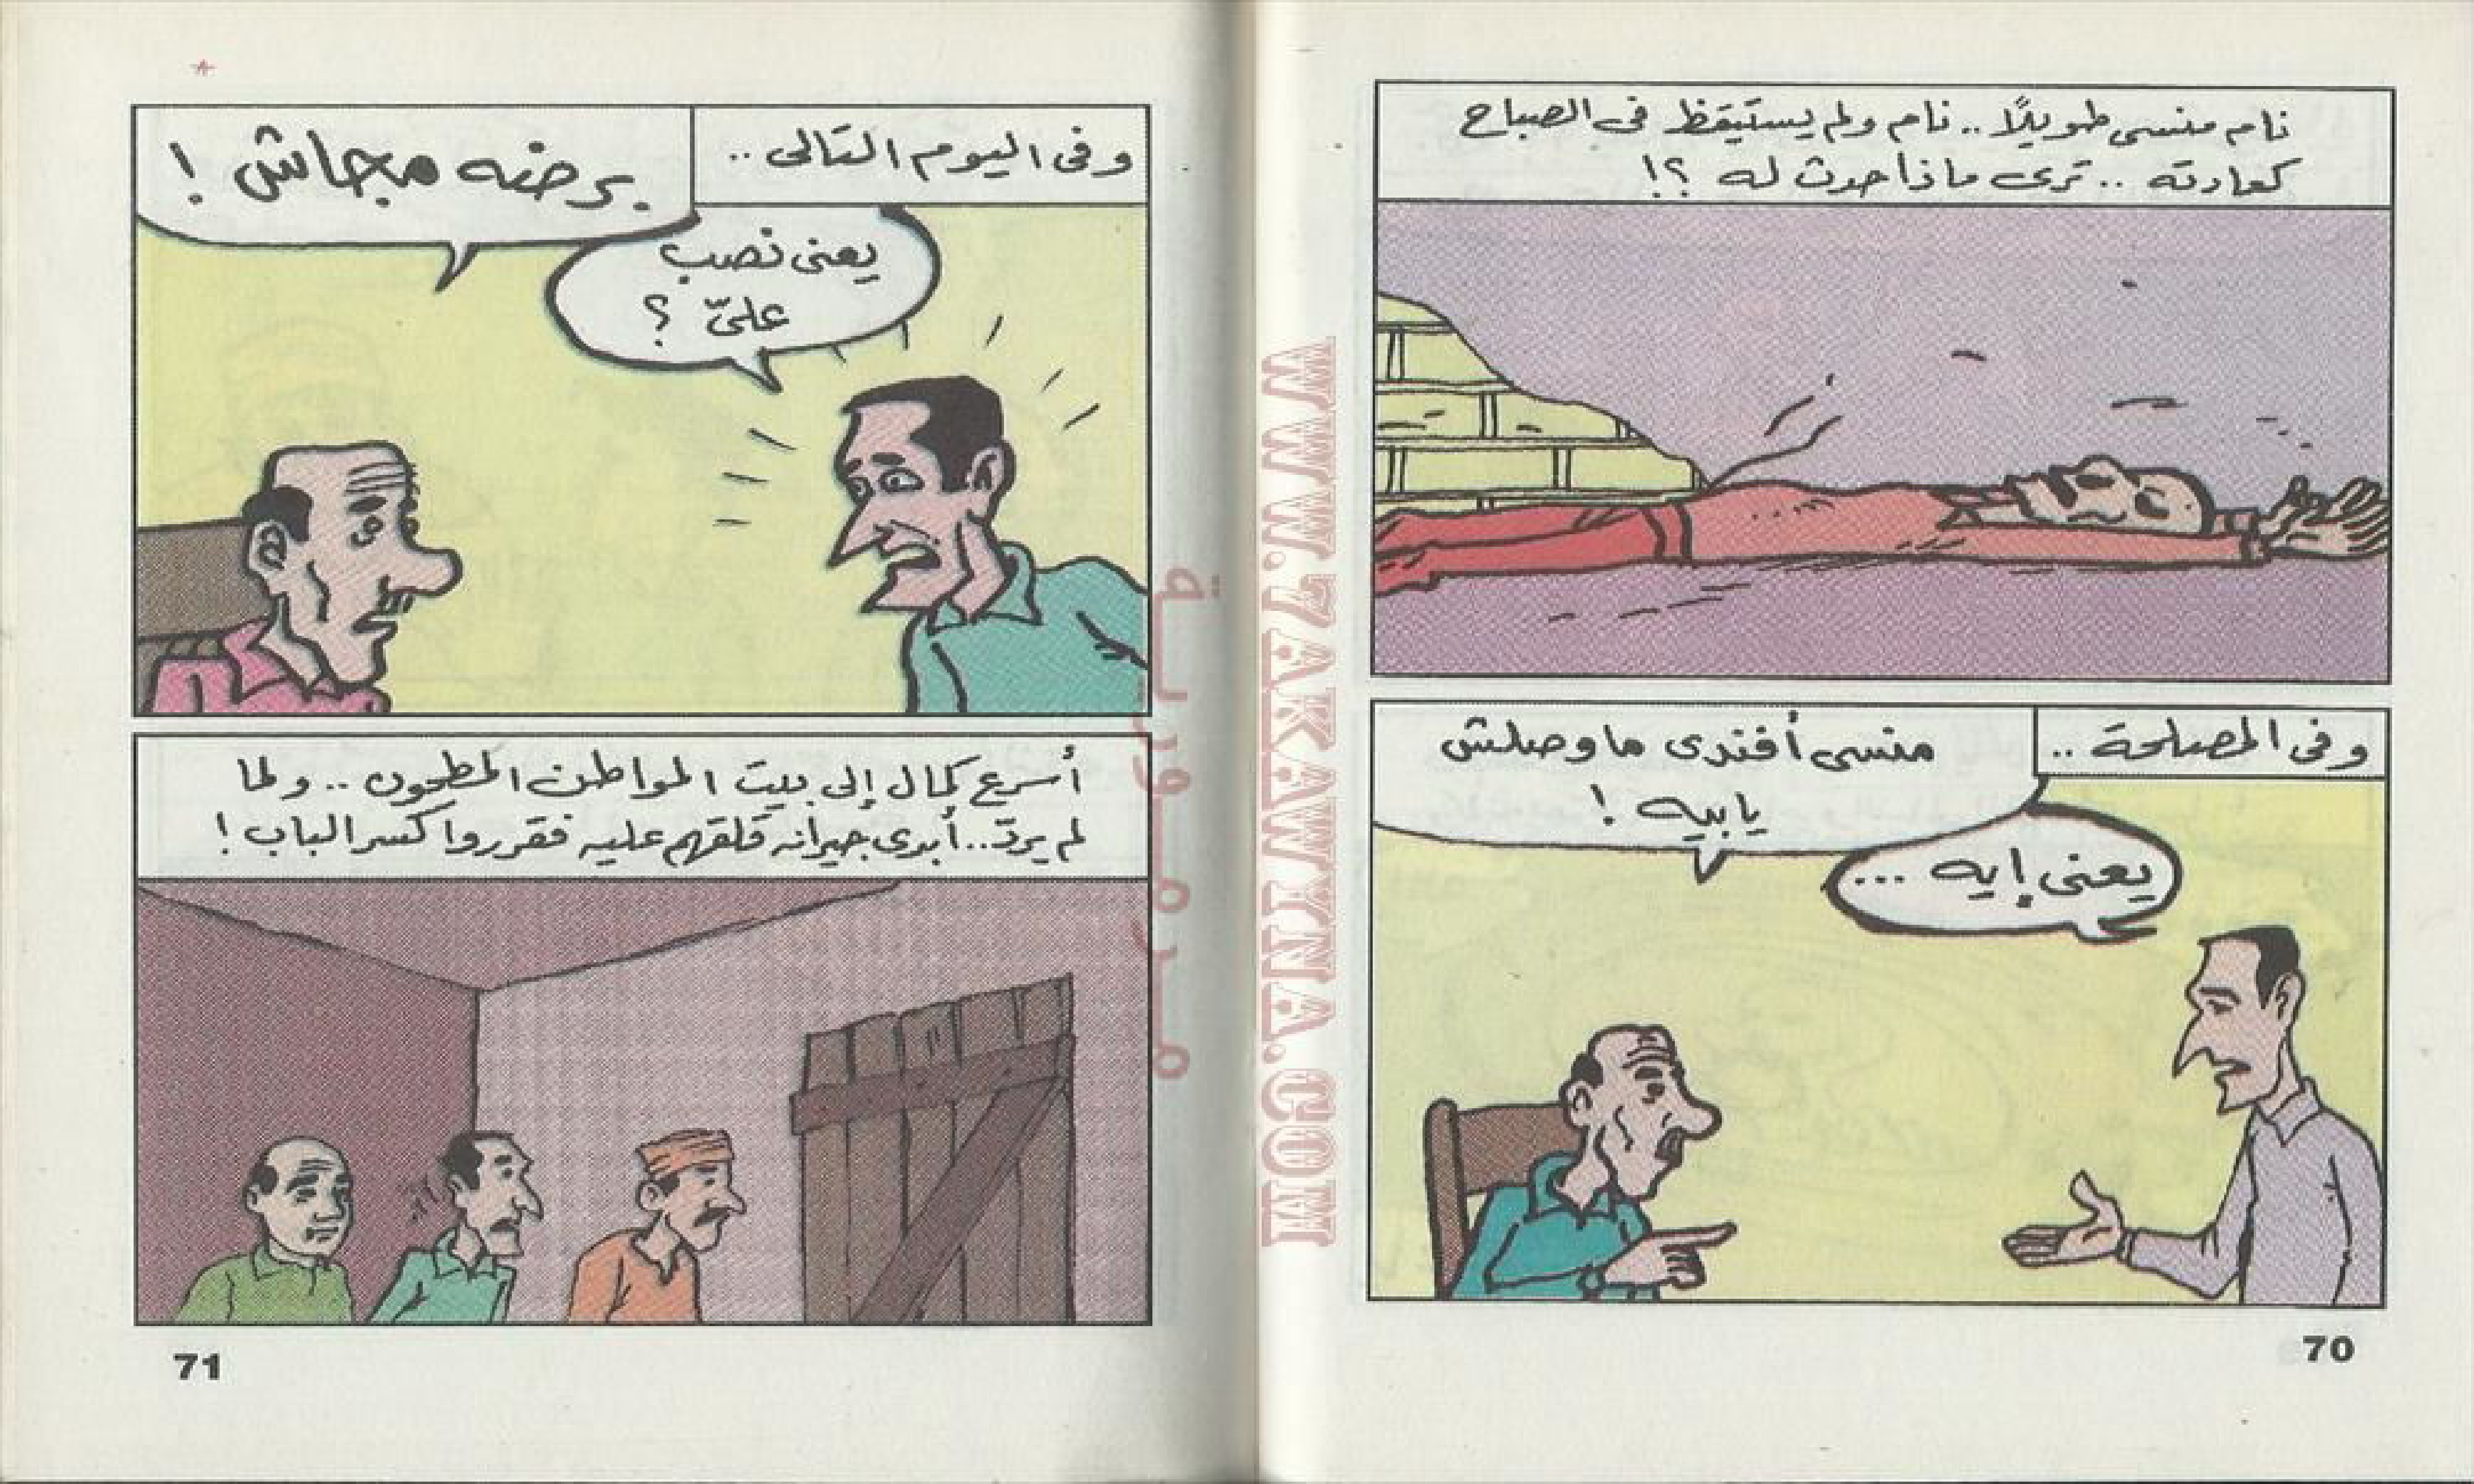 نام منسى طويلًا .. نام ولم يستيقظ فى الصباح
كعادته .. ترى ماذا حدث له ؟!
وفى المصلحة ..
منسى أفندى ما وصلش
يا بيه !
يعنى إيه ...
70
وفى اليوم التالى ..
برضه مجاش !
يعنى نصب
علىّ ؟
أسرع كمال إلى بيت المواطن المطحون .. ولما
لم يردّ .. أبدى جيرانه قلقهم عليه فقرروا كسر الباب !
71
WWW.7AKAWYNA.COM